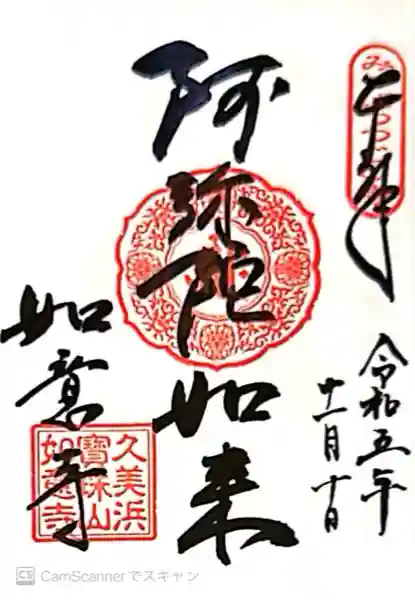 奉拝
令和五年
十一月十日
阿弥陀如来
如意寺
久美浜
寶珠山
如意寺
CS CamScannerでスキャン